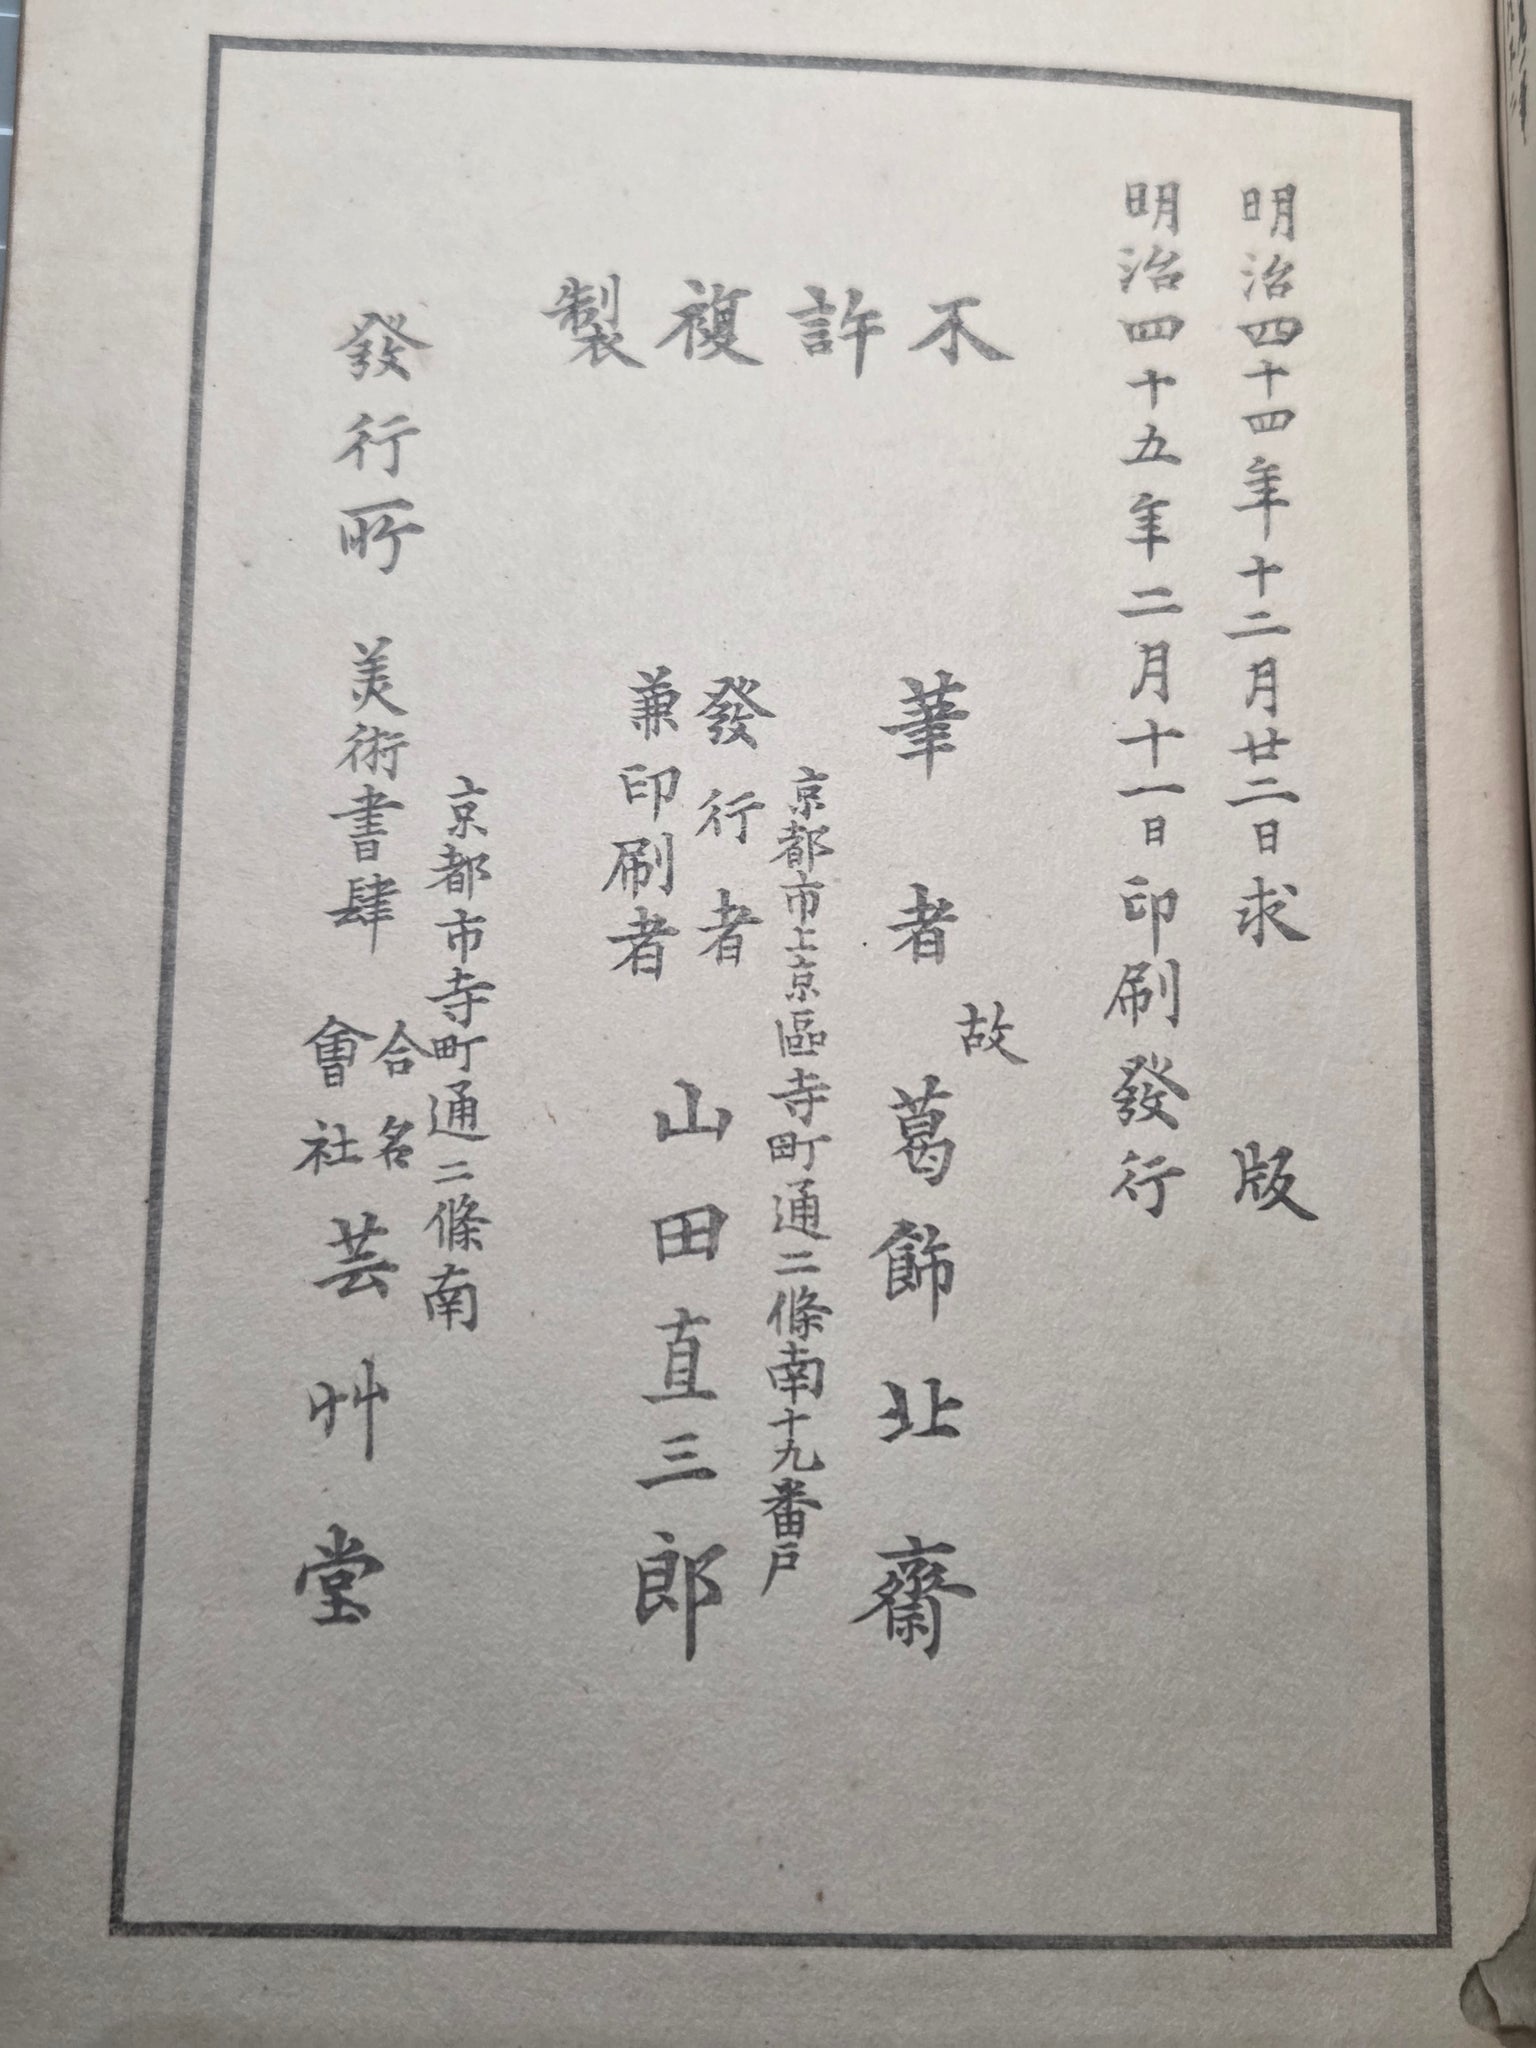 明治四十四年十二月廿二日求版
明治四十五年二月十一日印刷發行
不許複製
筆者 故 葛飾北齋
京都市上京區寺町通二條南十九番戸
發行者
兼印刷者
山田直三郎
京都市寺町通二條南
發行所 美術書肆 合名會社 芸艸堂